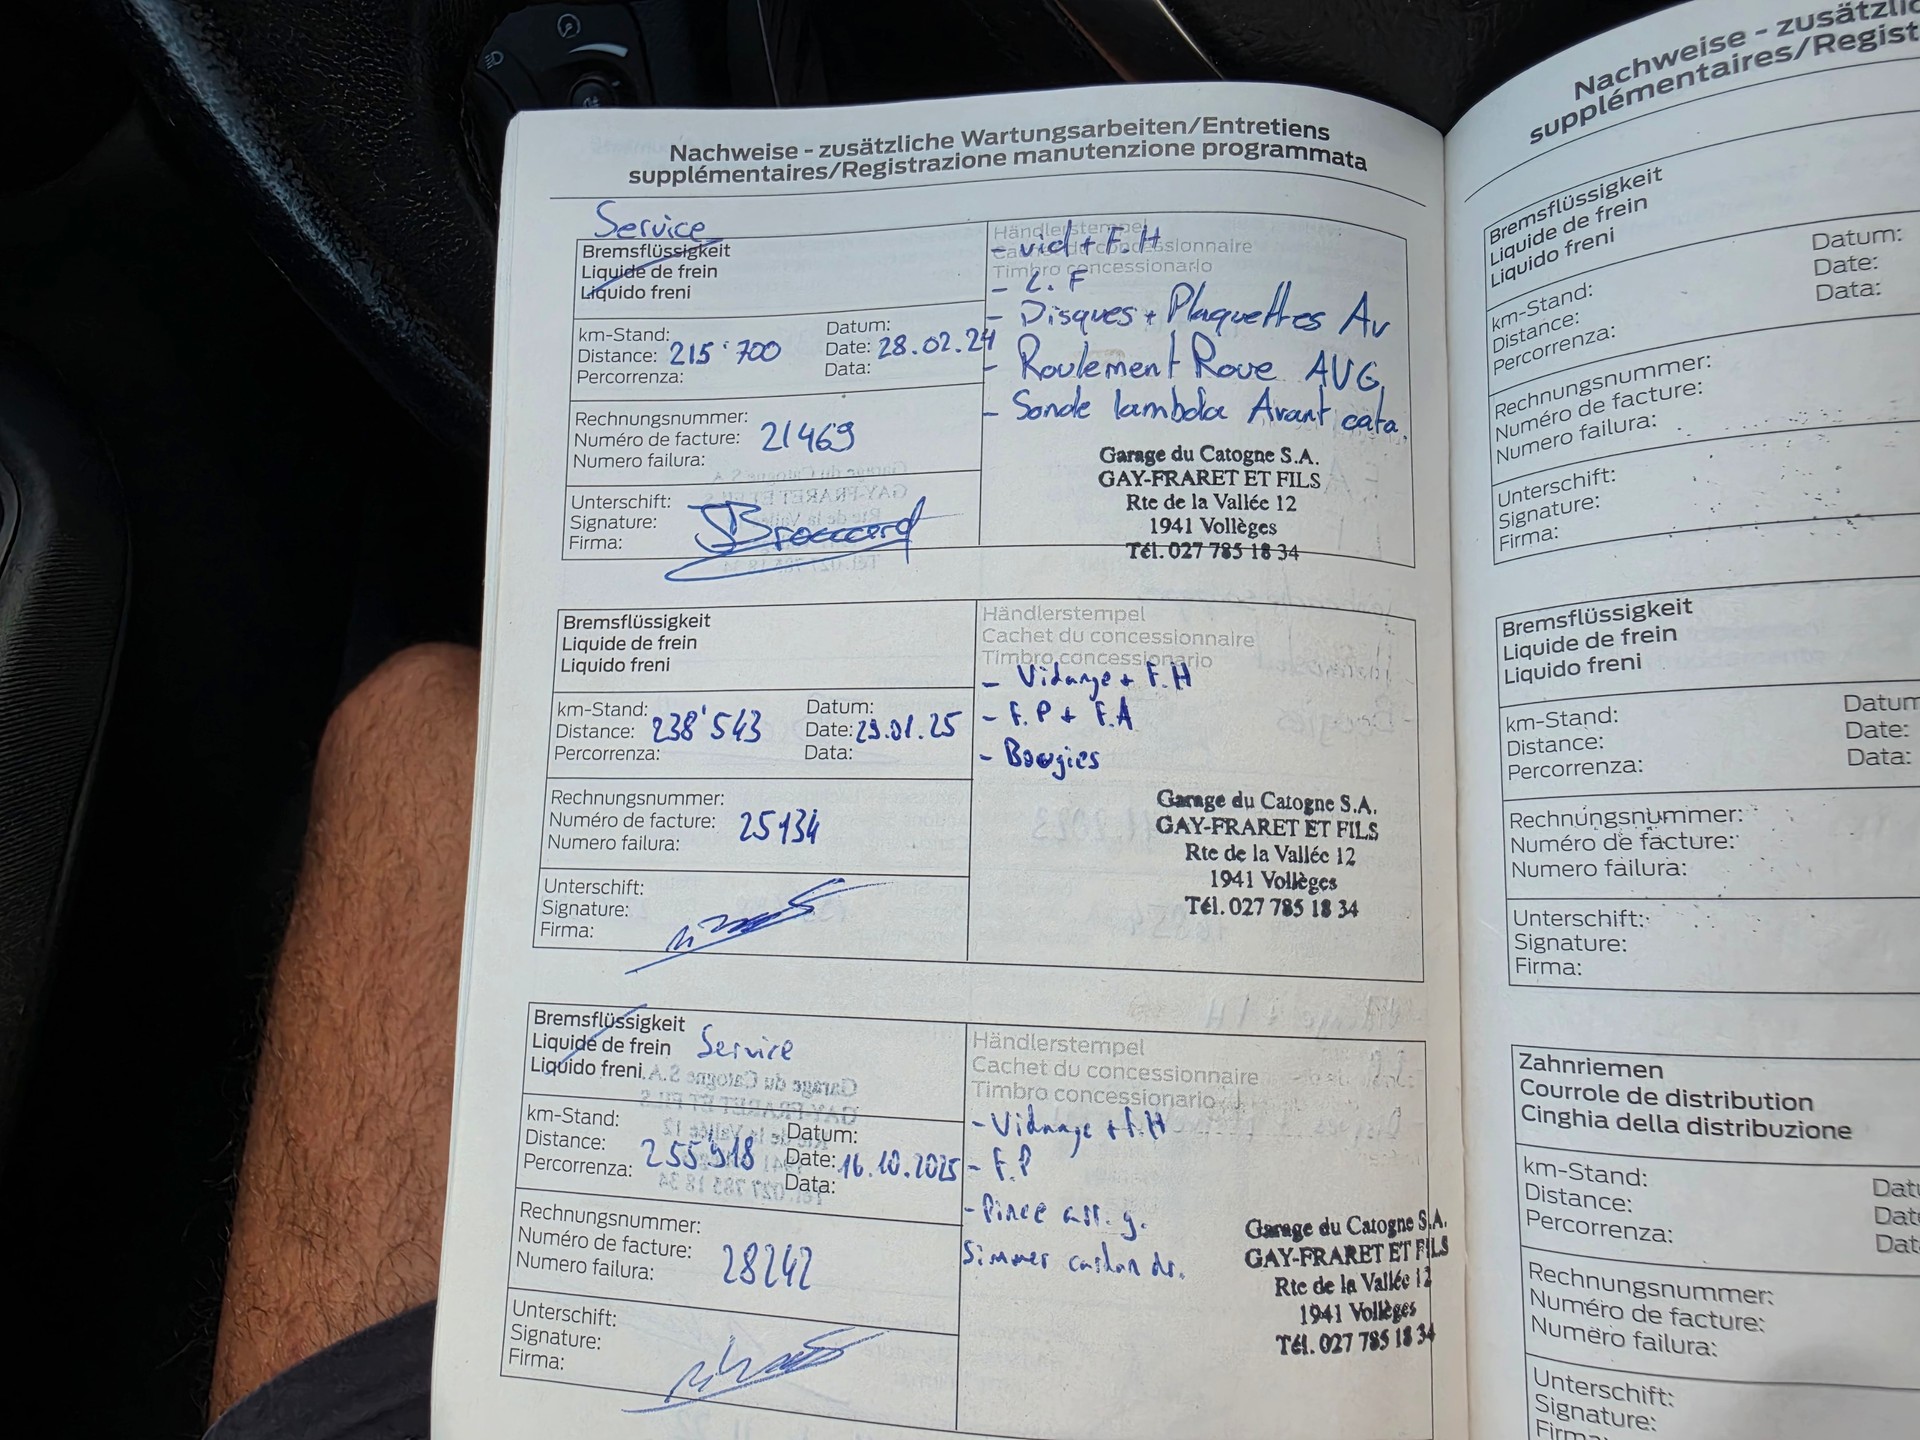 Nachweise - zusätzliche Wartungsarbeiten/Entretiens
supplémentaires/Registrazione manutenzione programmata
Service
Bremsflüssigkeit
Liquide de frein
Liquido freni
km-Stand:
Distance: 215'700
Percorrenza:
Datum:
Date: 28.02.24
Data:
Rechnungsnummer:
Numéro de facture: 21469
Numero failura:
Unterschift:
Signature:
Firma:
Händlerstempel
Cachet du concessionnaire
Timbro concessionario
- vid + F.H
- L.F
- Disques + Plaquettes Av
- Roulement Roue AVG
- Sonde lambda Avant cata.
Garage du Catogne S.A.
GAY-FRARET ET FILS
Rte de la Vallée 12
1941 Vollèges
Tél. 027 785 18 34
Bremsflüssigkeit
Liquide de frein
Liquido freni
km-Stand:
Distance: 238'543
Percorrenza:
Datum:
Date: 29.01.25
Data:
Rechnungsnummer:
Numéro de facture: 25134
Numero failura:
Unterschift:
Signature:
Firma:
Händlerstempel
Cachet du concessionnaire
Timbro concessionario
- Vidange + F.H
- F.P + F.A
- Bougies
Garage du Catogne S.A.
GAY-FRARET ET FILS
Rte de la Vallée 12
1941 Vollèges
Tél. 027 785 18 34
Bremsflüssigkeit
Liquide de frein Service
Liquido freni
km-Stand:
Distance: 255'918
Percorrenza:
Datum:
Date: 16.10.2025
Data:
Rechnungsnummer:
Numéro de facture: 28242
Numero failura:
Unterschift:
Signature:
Firma:
Händlerstempel
Cachet du concessionnaire
Timbro concessionario
- Vidange + F.H
- F.P
- Pince arr. g.
Simmer cardan dr.
Garage du Catogne S.A.
GAY-FRARET ET FILS
Rte de la Vallée 12
1941 Vollèges
Tél. 027 785 18 34
Nachweise - zusätzlic
supplémentaires/Regist
Bremsflüssigkeit
Liquide de frein
Liquido freni
km-Stand:
Distance:
Percorrenza:
Datum:
Date:
Data:
Rechnungsnummer:
Numéro de facture:
Numero failura:
Unterschift:
Signature:
Firma:
Bremsflüssigkeit
Liquide de frein
Liquido freni
km-Stand:
Distance:
Percorrenza:
Datum
Date:
Data:
Rechnungsnummer:
Numéro de facture:
Numero failura:
Unterschift:
Signature:
Firma:
Zahnriemen
Courrole de distribution
Cinghia della distribuzione
km-Stand:
Distance:
Percorrenza:
Datu
Date
Data
Rechnungsnummer:
Numéro de facture:
Numero failura:
Unterschift:
Signature:
Firma: